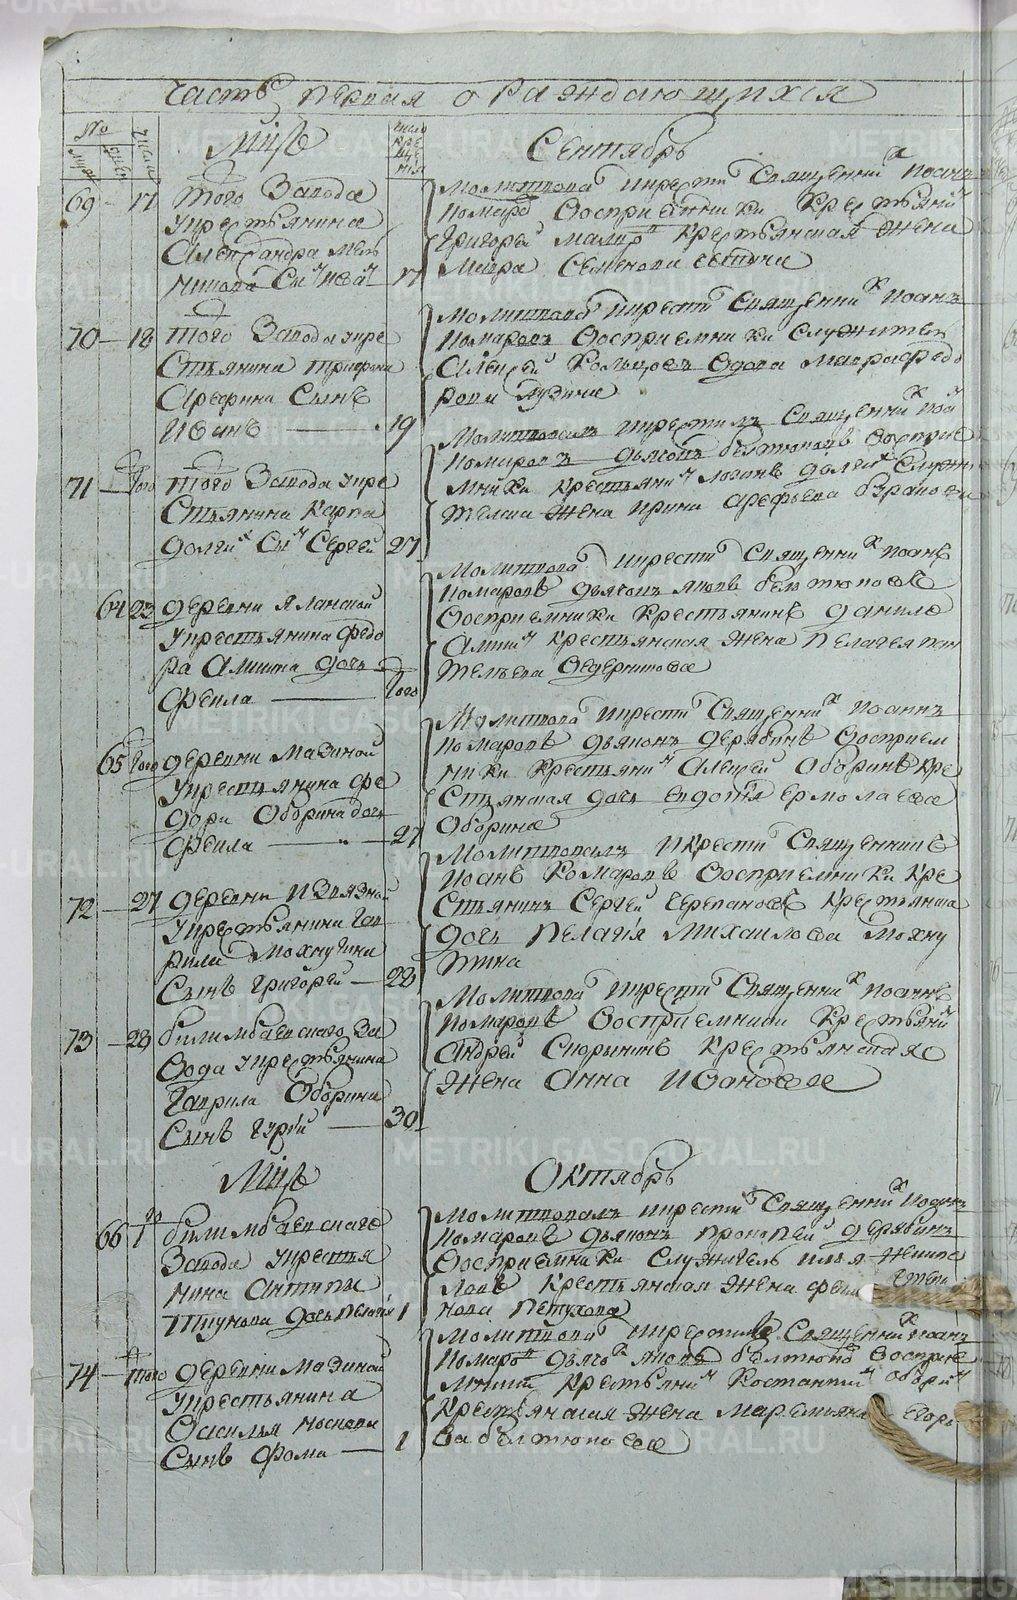 Часть первая о раждающихся
№ числа
муж женъ
Мцъ
число кре ще ния
Сентябрь
69 17
того Завода
у крестьянина
Александра Мель
никова Сынъ Иванъ 17
Молитвова и крести Священник Иоанъ
Комаро Восприемники Крестьянин
Григорей крестьянская жена
Мавра Семенова
70 18
того Завода у кре
стьянина Трифона
Арефина Сынъ
Иванъ 19
Молитвова и крести Священник Иоанъ
Комаровъ Восприемники Служитель
Алексей Кольцовъ вдова Мавра Федо
рова
71 того
того Завода у кре
стьянина Карпа
Долгих Сын Сергей 27
Молитвовалъ и крестилъ Священник Иоан
Комаровъ дьячокъ Белтюковъ восприе
мники крестьянин Логинъ Долгих Служи
тельша жена Ирина Арефьева
64 23
деревни Яланской
у крестьянина Федо
ра Алишина дочь
Фекла того
Молитвова и крести Священник Иоанъ
Комаровъ дьячокъ Яковъ Белтюковъ
Восприемники Крестьянинъ Данило
Алишин крестьянская жена Пелагея Пан
тельева Ведерникова
65 того
деревни Мазиной
у крестьянина Фе
дора Оборина дочь
Фекла 27
Молитвова и крести Священник Иоаннъ
Комаровъ дьяконъ Дерябинъ Восприем
ники крестьянин Алексей Оборинъ Кре
стьянская дочь Евдотья Ермолаева
Оборина
72 27
деревни Извязной
у крестьянина Гав
рила Мохнутина
Сынъ Григорей 28
Молитвовалъ и крести Священникъ
Иоанъ Комаровъ Восприемники кре
стьянинъ Сергей Черепановъ Крестьянска
дочь Пелагия Михаилова Мохну
тина
73 28
Билимбаевскаго За
вода у крестьянина
Гаврила Оборина
Сынъ Гурей 30
Молитвова и крести Священник Иоаннъ
Комаровъ Восприемники Крестьянин
Андрей Скорынинъ Крестьянская
жена Анна Иванова
Мцъ
Октябрь
66 1го
Билимбаевскаго
Завода у крестья
нина Антипы
Тиунова дочь Пелагия 1
Молитвовалъ и крести Священник Иоанъ
Комаровъ дьяконъ Прокопей Дерябинъ
Восприемники Служитель Илья
ловъ Крестьянская жена
нова Петухова
74 того
деревни Мазиной
у крестьянина
Василья Носкова
Сынъ Фома 1
Молитвова и крестилъ Священник Иоанъ
Комаров дьячокъ Яковъ Белтюко Восприе
мники Крестьянин Костантин Оборин
Крестьянская жена Маремьяна Егоро
ва Белтюкова
METRIKI.GASO-URAL.RU